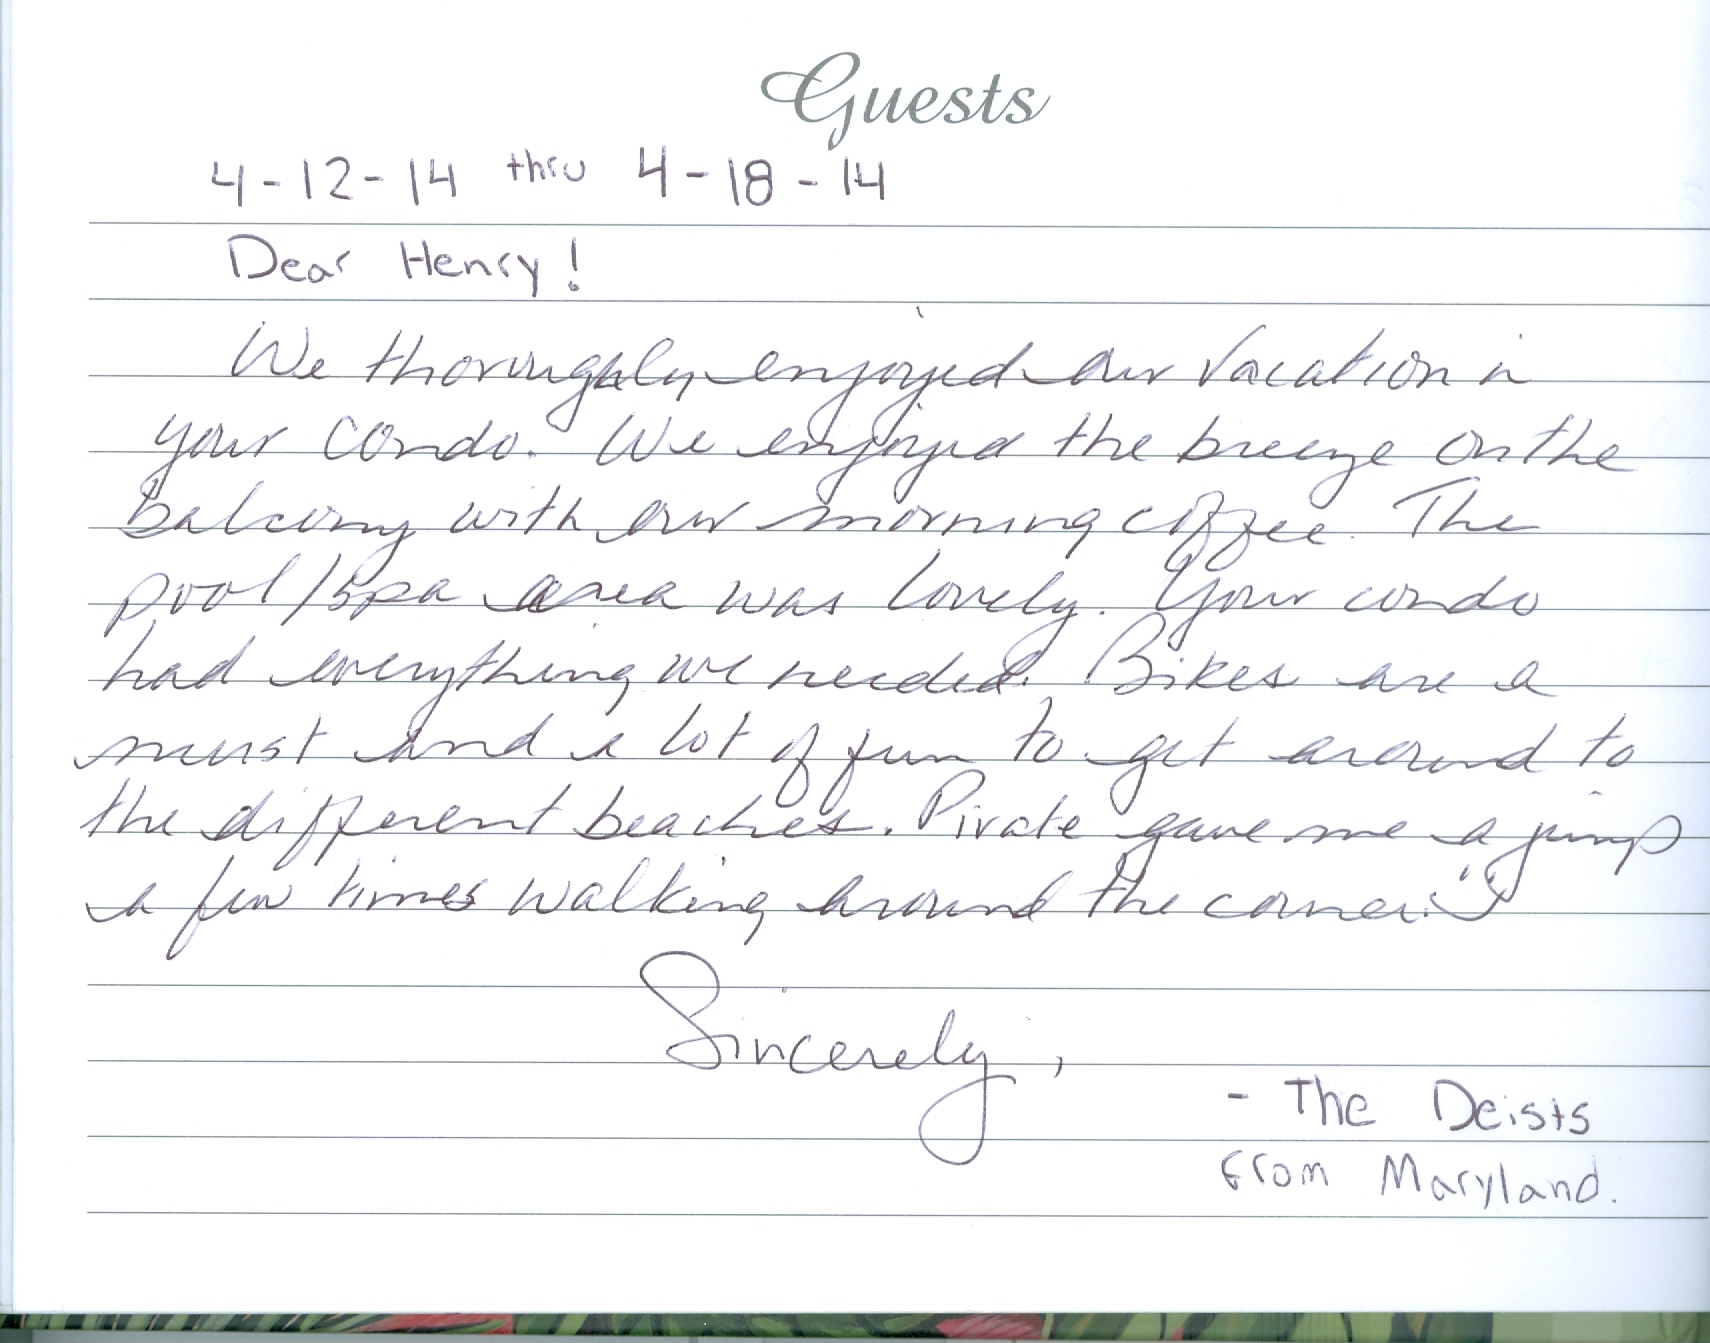 Guests
4-12-14 thru 4-18-14
Dear Henry!
We thoroughly enjoyed our vacation in
your condo. We enjoyed the breeze on the
balcony with our morning coffee. The
pool/spa area was lovely. Your condo
had everything we needed. Bikes are a
must and a lot of fun to get around to
the different beaches. Pirate gave me a jump
a few times walking around the corner. :)
Sincerely,
- The Deists
from Maryland.